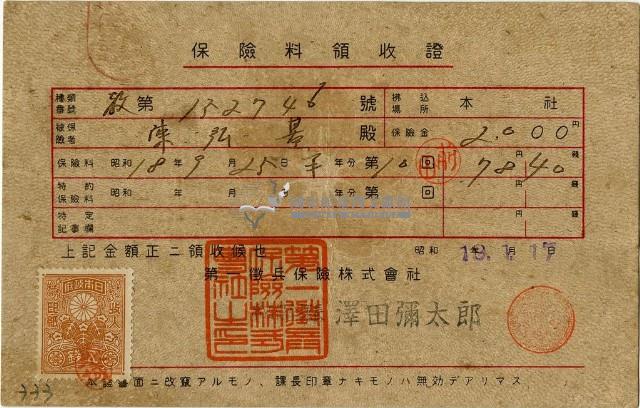 保險料領收證
種類番號 教第 152746 號 拂込場所 本社
被保險者 陳弘 殿 保險金 2,000 円
保險料 昭和 18年9月25日 年分 第10回 78円40錢
特約保險料 昭和 年 月 年分 第 回 円 錢
特定記事欄
上記金額正ニ領收候也 昭和 19年1月17日
第一徵兵保險株式會社
澤田彌太郎
第一徵兵保險株式會社之印
收入印紙
333
本證書面ニ改竄アルモノ、課長印章ナキモノハ無効デアリマス